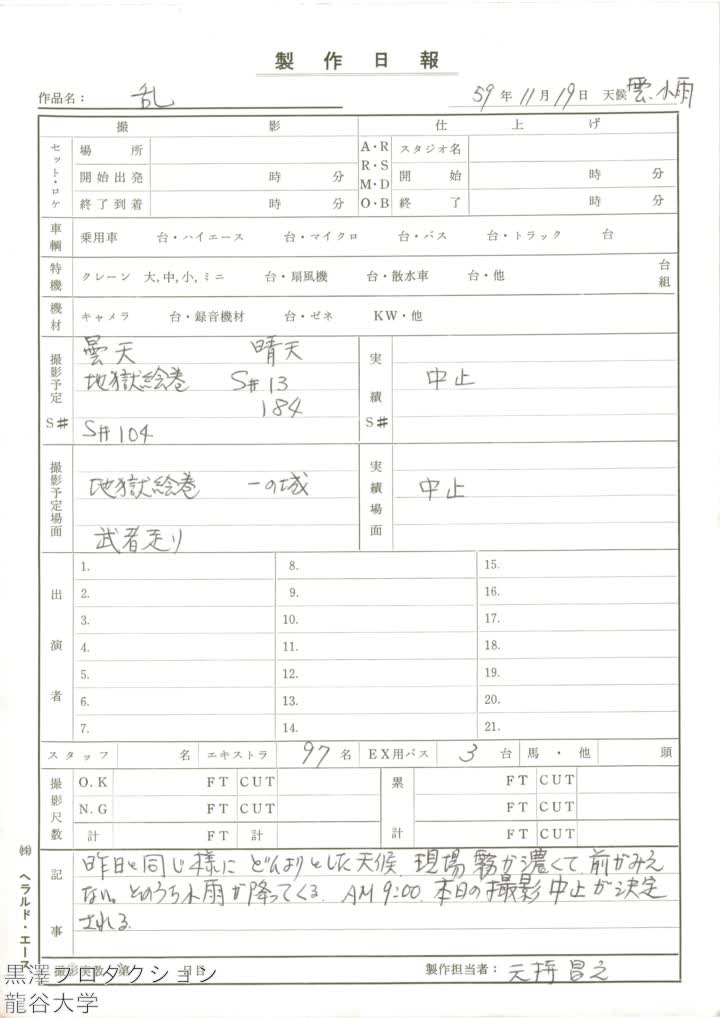 製作日報
作品名： 乱 59年11月19日 天候 雲、小雨
撮影 仕上げ
セット・ロケ 場所 A・R R・S M・D O・B スタジオ名
開始出発 時 分 開始 時 分
終了到着 時 分 終了 時 分
車輌 乗用車 台・ハイエース 台・マイクロ 台・バス 台・トラック 台
特機 クレーン 大,中,小,ミニ 台・扇風機 台・散水車 台・他 台組
機材 キャメラ 台・録音機材 台・ゼネ KW・他
撮影予定 S# 曇天 晴天 実績 S#
地獄絵巻 S#13 中止
184
S#104
撮影予定場面 地獄絵巻 一の城 実績場面 中止
武者走り
出演者
1. 8. 15.
2. 9. 16.
3. 10. 17.
4. 11. 18.
5. 12. 19.
6. 13. 20.
7. 14. 21.
スタッフ 名 エキストラ 97名 EX用バス 3台 馬・他 頭
撮影尺数 O.K FT CUT 累計 FT CUT
N.G FT CUT FT CUT
計 FT 計 FT CUT
記事 昨日と同じ様に どんよりとした天候、現場 霧が濃くて、前がみえ
ない。そのうち小雨が降ってくる。AM9:00、本日の撮影 中止が決定
される。
撮影実数 第 日目 製作担当者： 元持昌之
㈱ヘラルド・エース
黒澤プロダクション
龍谷大学